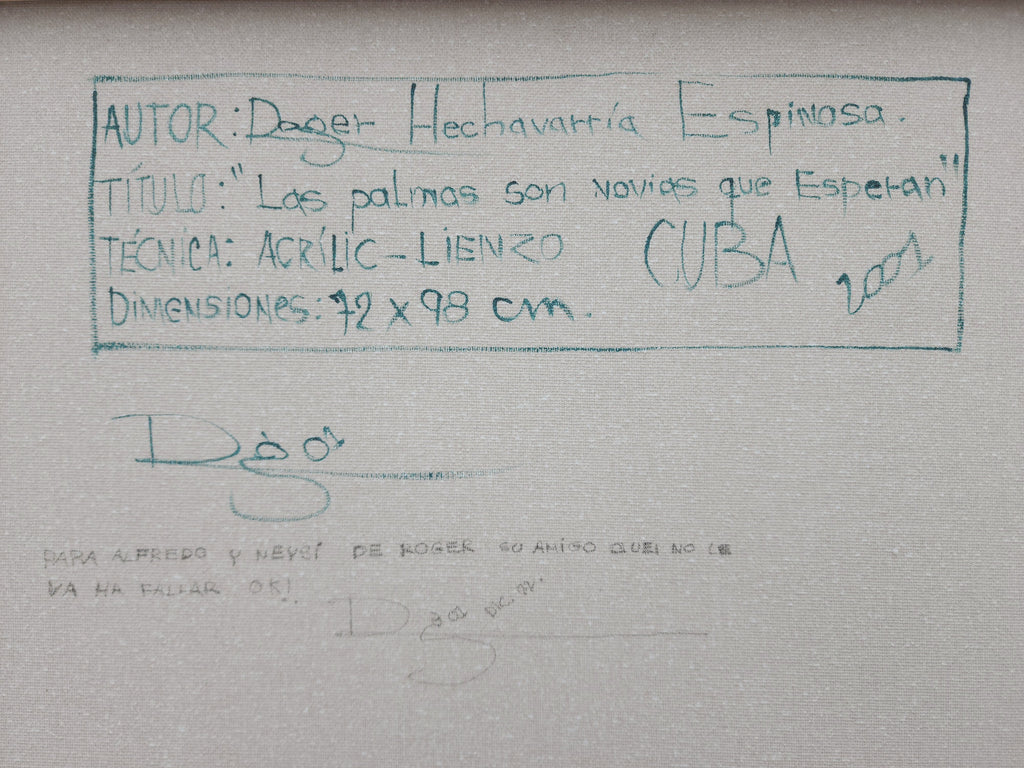 AUTOR: Dager Hechavarría Espinosa.
TÍTULO: "Las palmas son novias que Esperan"
TÉCNICA: ACRÍLIC-LIENZO CUBA 2001
DIMENSIONES: 72 x 98 cm.
01
PARA ALFREDO Y NEYSÍ DE ROGER SU AMIGO QUE NO LE
VA HA FALLAR OK!.
01 DIC.